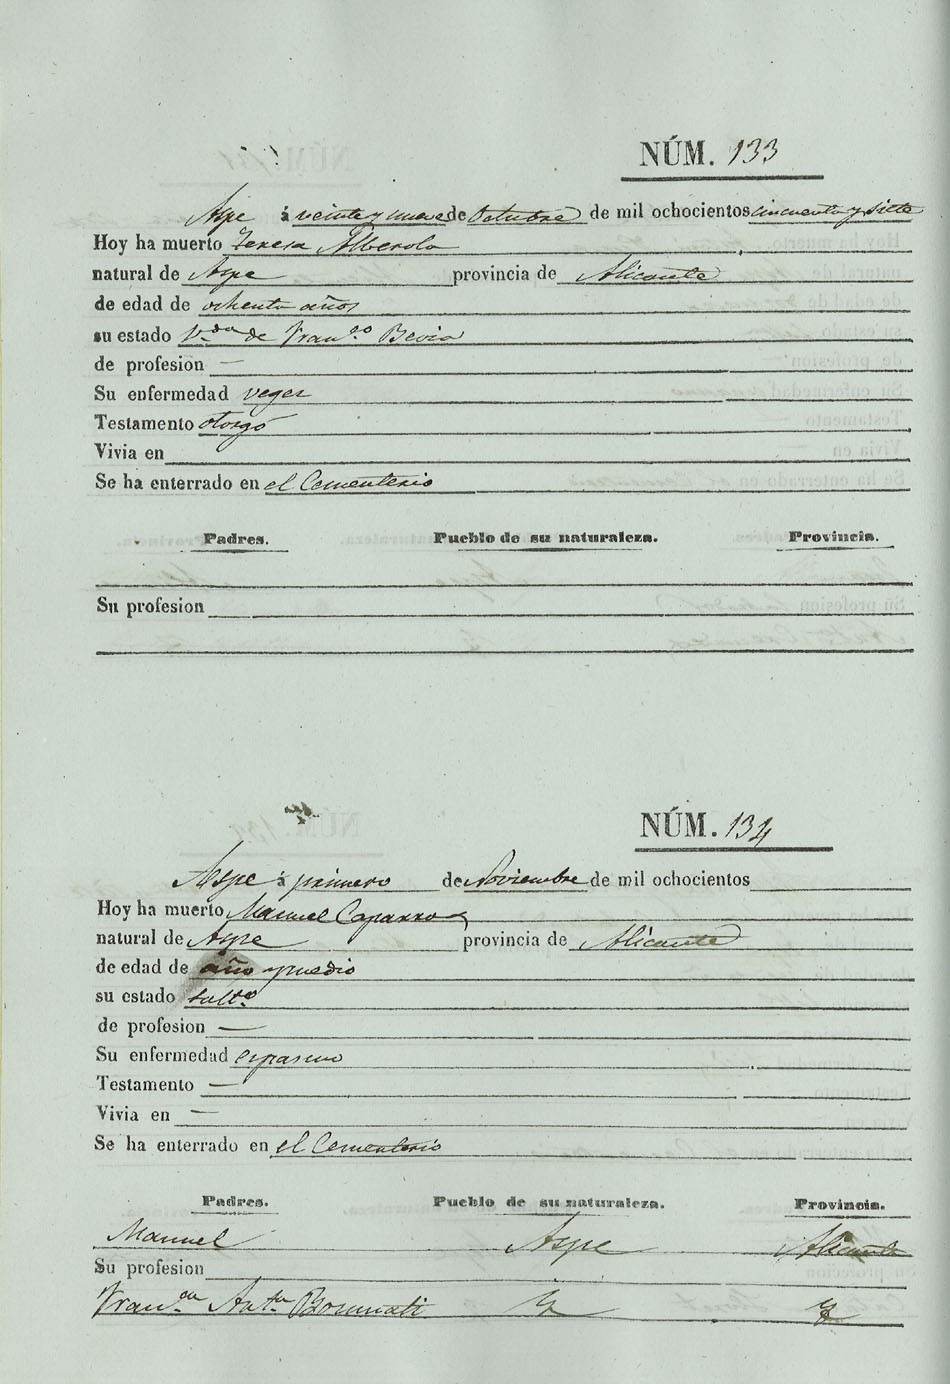 NÚM. 133
Aspe á veinte y nueve de Octubre de mil ochocientos cincuenta y siete
Hoy ha muerto Teresa Alberola
natural de Aspe provincia de Alicante
de edad de ochenta años
su estado V.da de Fran.co Bevia
de profesion —
Su enfermedad veger
Testamento otorgó
Vivia en
Se ha enterrado en el Cementerio
Padres. Pueblo de su naturaleza. Provincia.
Su profesion
NÚM. 134
Aspe á primero de Noviembre de mil ochocientos
Hoy ha muerto Manuel Caparros
natural de Aspe provincia de Alicante
de edad de año y medio
su estado solt.o
de profesion —
Su enfermedad espasmo
Testamento —
Vivia en —
Se ha enterrado en el Cementerio
Padres. Pueblo de su naturaleza. Provincia.
Manuel Aspe Alicante
Su profesion
Fran.ca Ant.a